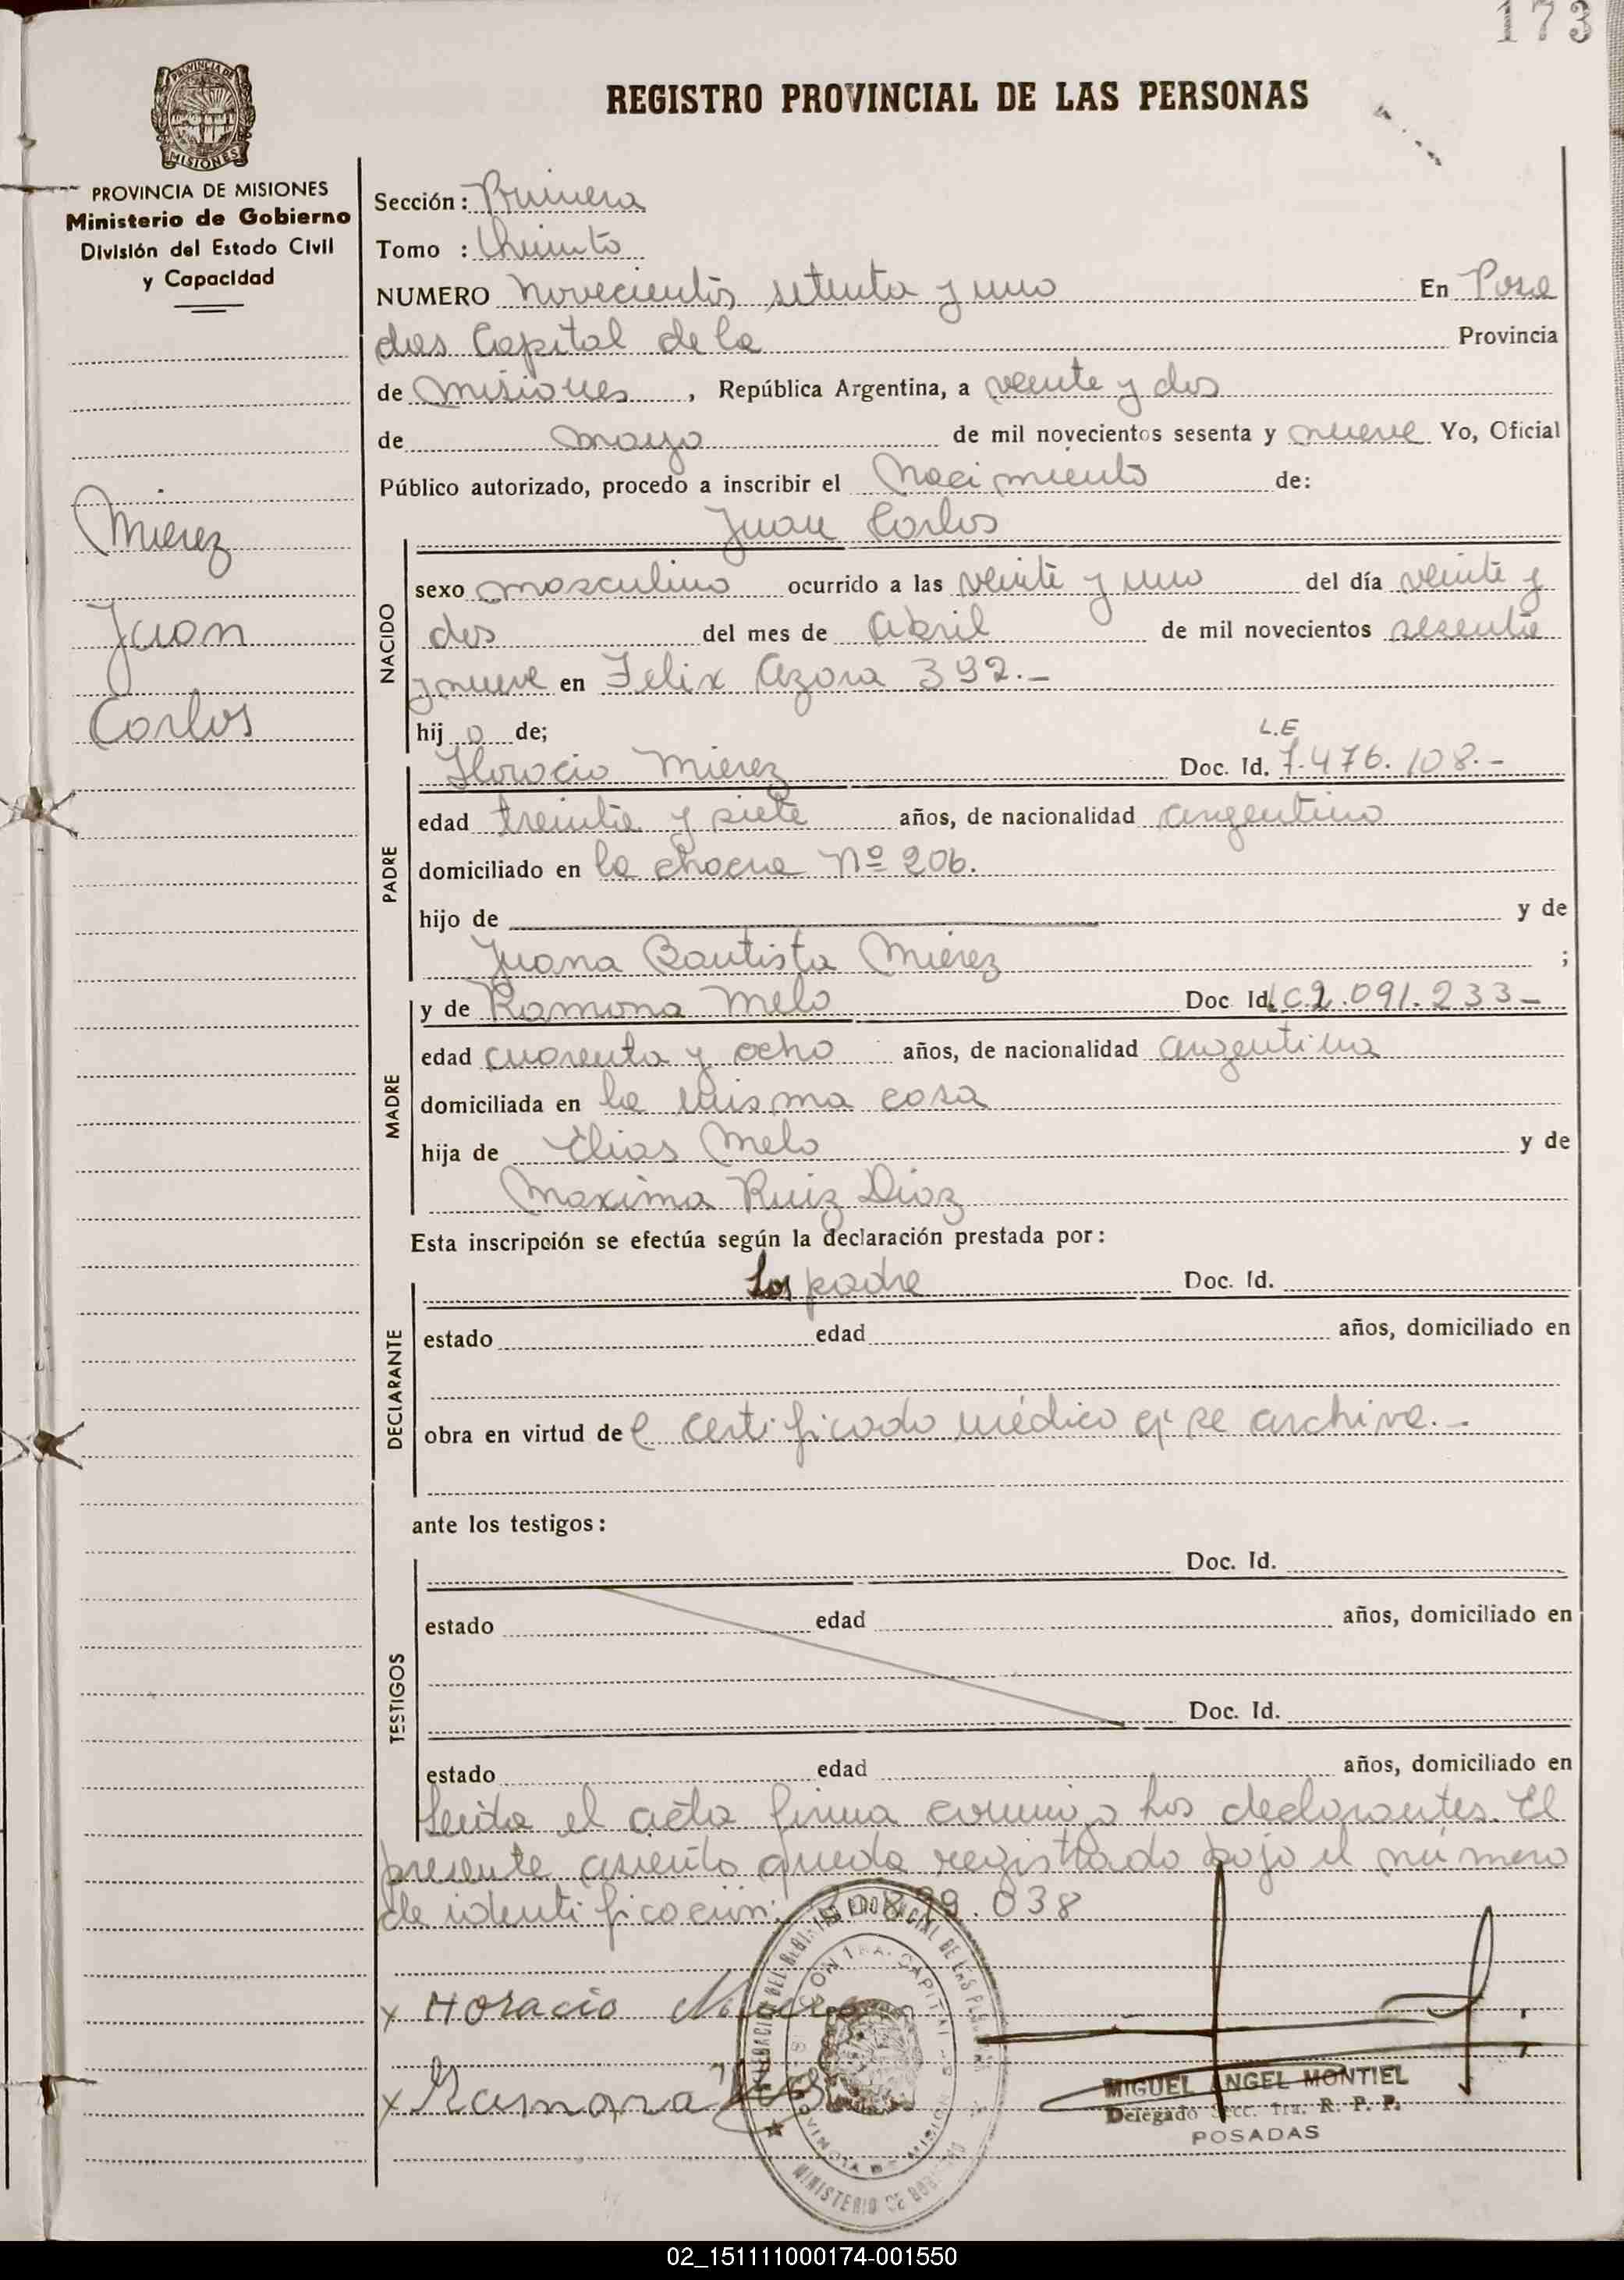 173
REGISTRO PROVINCIAL DE LAS PERSONAS
PROVINCIA DE MISIONES
Ministerio de Gobierno
División del Estado Civil
y Capacidad
Mierez
Juan
Carlos
Sección: Primera
Tomo : Quinto
NUMERO novecientos setenta y uno En Posa
das Capital de la Provincia
de Misiones, República Argentina, a veinte y dos
de mayo de mil novecientos sesenta y nueve Yo, Oficial
Público autorizado, procedo a inscribir el Nacimiento de:
Juan Carlos
NACIDO
sexo masculino ocurrido a las veinte y uno del día veinte y
dos del mes de Abril de mil novecientos sesenta
y nueve en Felix Azara 392.-
hij o de;
L.E
Horacio Mierez Doc. Id. 7.476.108.-
PADRE
edad treinta y siete años, de nacionalidad argentino
domiciliado en la chacra Nº 206.
hijo de y de
Juana Bautista Mierez ;
y de Ramona Melo Doc Id. LC 2.091.233-
MADRE
edad cuarenta y ocho años, de nacionalidad argentina
domiciliada en la misma casa
hija de Elias Melo y de
Maxima Ruiz Diaz
Esta inscripción se efectúa según la declaración prestada por:
Los padre Doc. Id.
DECLARANTE
estado edad años, domiciliado en
obra en virtud de l certificado médico q' se archiva.-
ante los testigos:
Doc. Id.
TESTIGOS
estado edad años, domiciliado en
Doc. Id.
estado edad años, domiciliado en
Leída el acta firma conmigo los declarantes. El
presente asiento queda registrado bajo el número
de identificación: .038
x Horacio
x Ramona
MIGUEL ANGEL MONTIEL
Delegado Secc. 1ra. R. P. P.
POSADAS
02_151111000174-001550